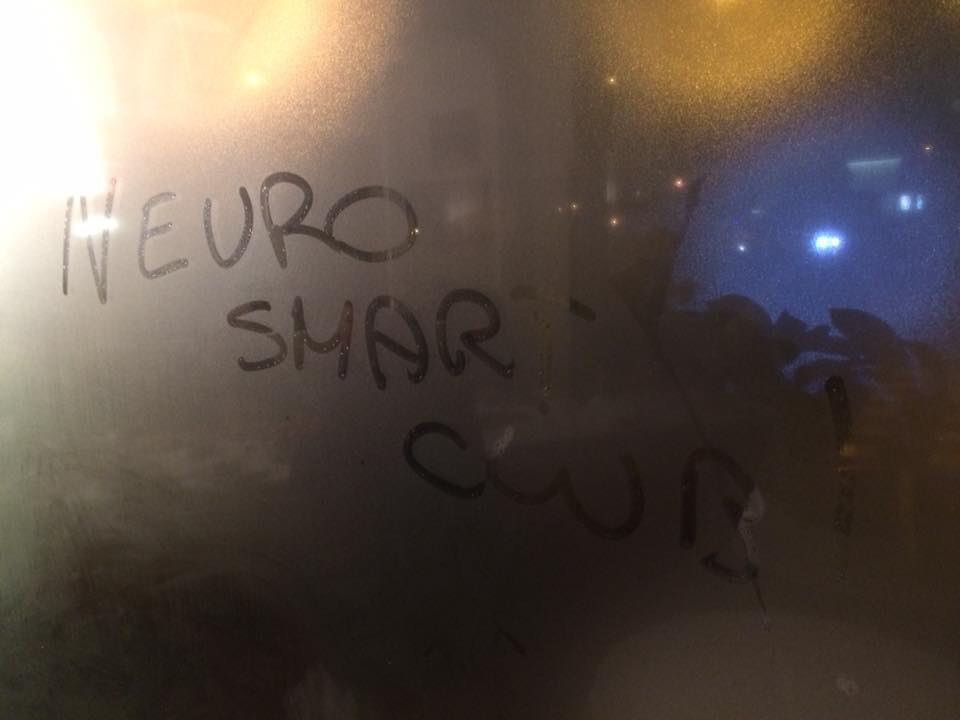 NEURO
SMART
CLUB!